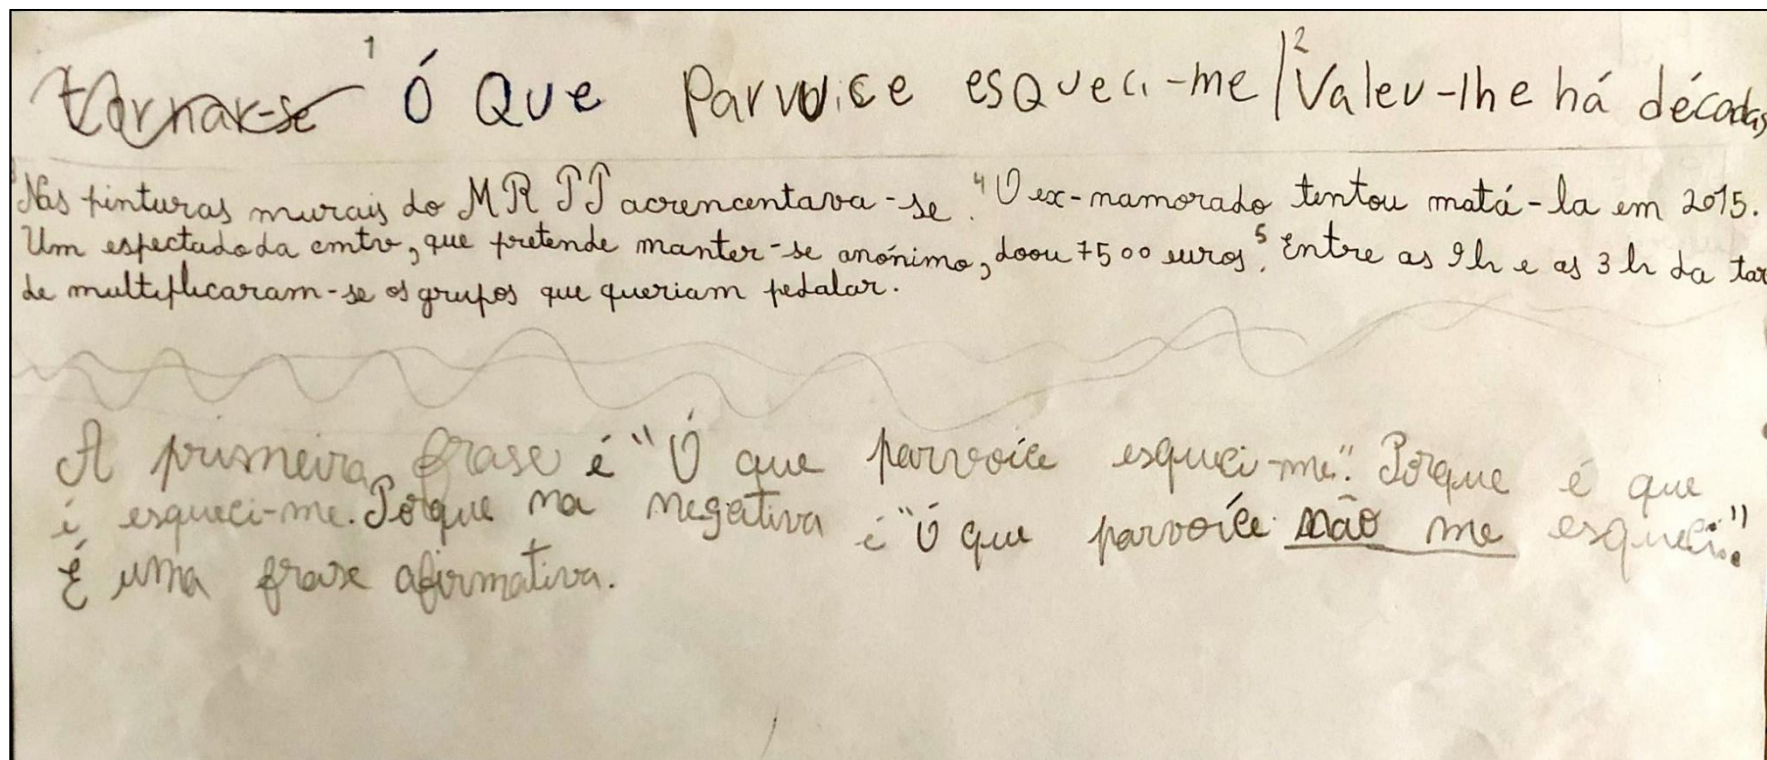 tornar-se ¹ Ó QUe Parvoice esQUeci-me | ² Valeu-lhe há décadas
³ Nas pinturas murais do MRPP acrencentava-se. ⁴ O ex-namorado tentou matá-la em 2015.
Um espectadoda cmtv, que pretende manter-se anónimo, doou 7500 euros. ⁵ Entre as 9h e as 3h da tar
de multiplicaram-se os grupos que queriam pedalar.
A primeira frase é "Ó que parvoíce esqueci-me". Porque é que
é esqueci-me. Porque na negativa é "Ó que parvoíce não me esqueci."
É uma frase afirmativa.